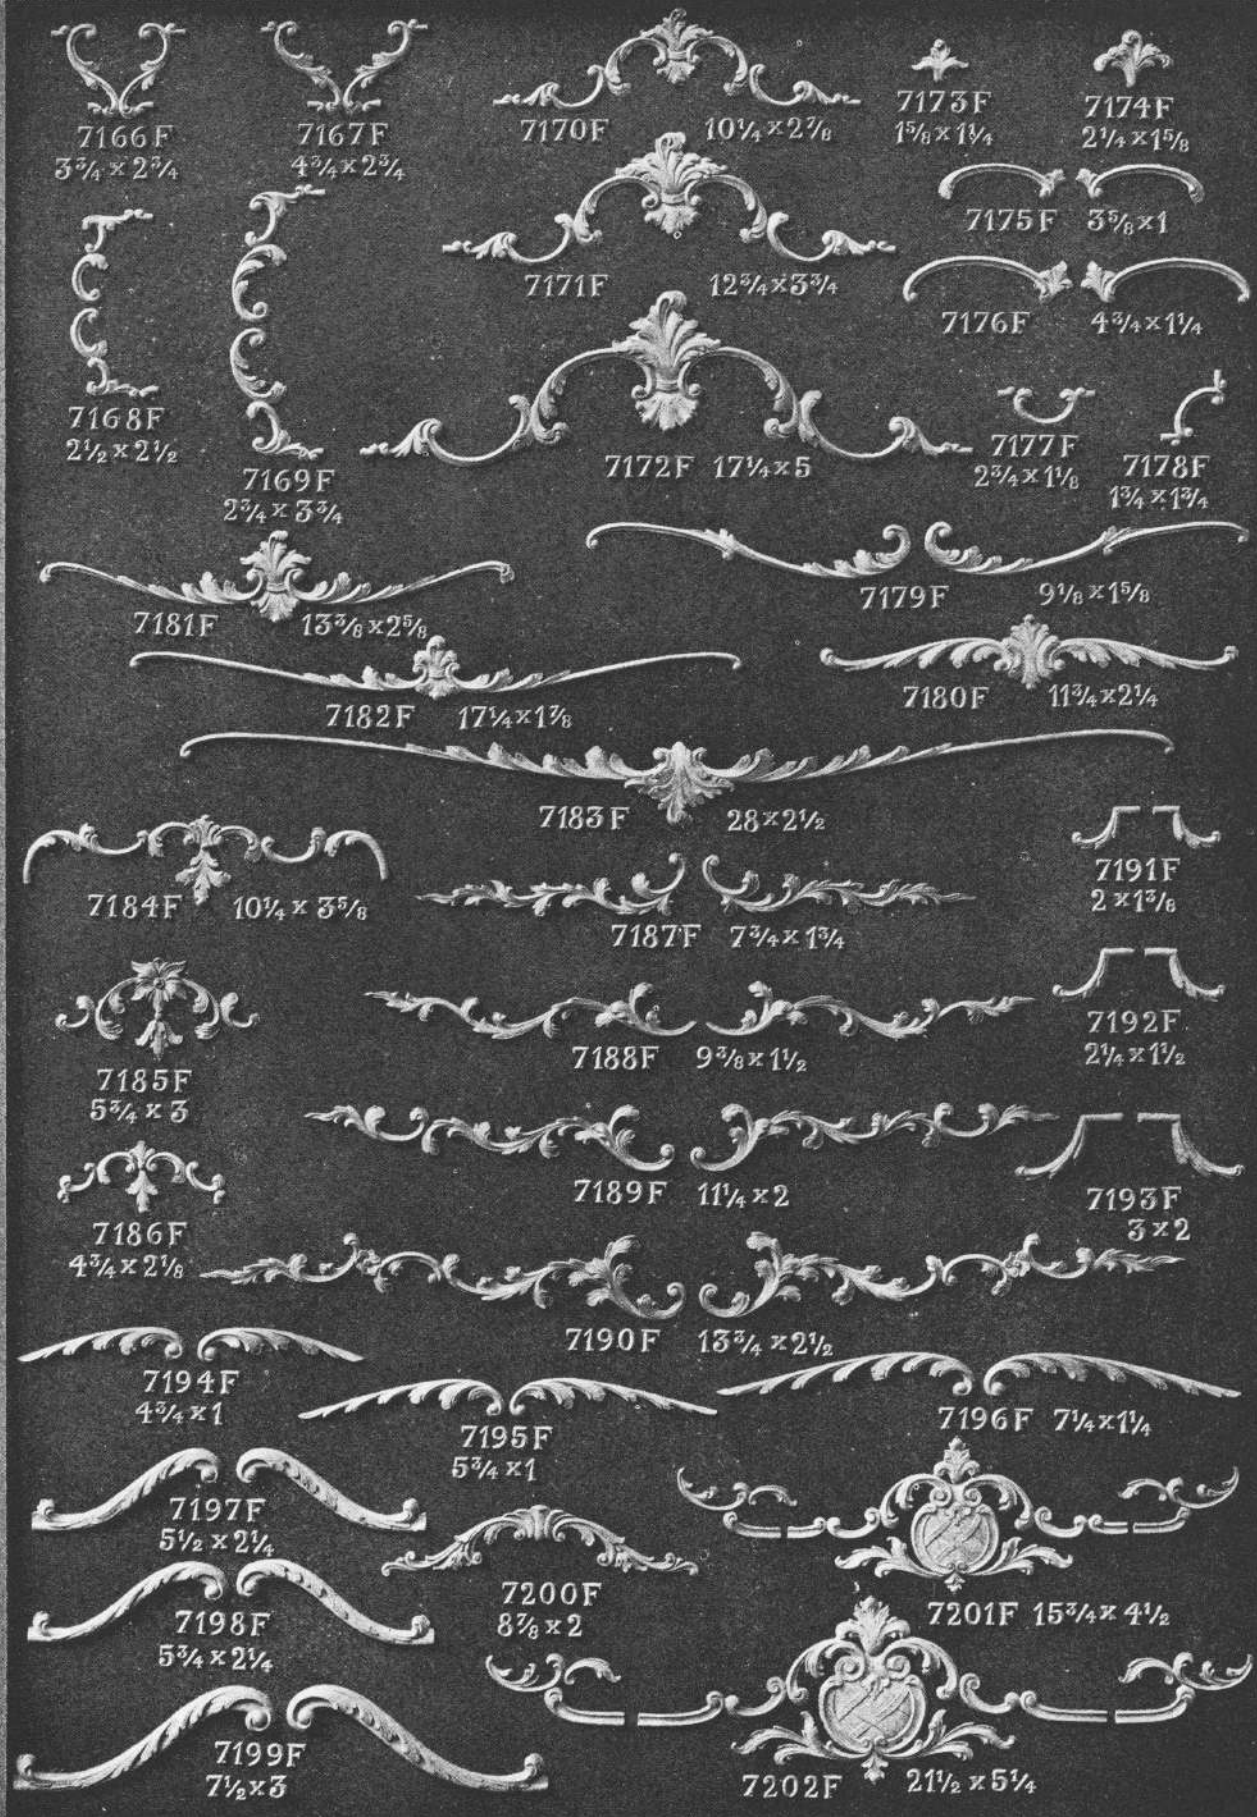 7166F
3¾ x 2¾
7167F
4¾ x 2¾
7170F 10¼ x 2⅞
7173F
1⅝ x 1¼
7174F
2¼ x 1⅝
7171F 12¾ x 3¾
7175F 3⅝ x 1
7176F 4¾ x 1¼
7168F
2½ x 2½
7169F
2¾ x 3¾
7172F 17¼ x 5
7177F
2¾ x 1⅛
7178F
1¾ x 1¾
7181F 13⅜ x 2⅝
7179F 9⅛ x 1⅝
7182F 17¼ x 1⅞
7180F 11¾ x 2¼
7183F 28 x 2½
7184F 10¼ x 3⅝
7187F 7¾ x 1¾
7191F
2 x 1⅜
7185F
5¾ x 3
7188F 9⅜ x 1½
7192F
2¼ x 1½
7186F
4¾ x 2⅛
7189F 11¼ x 2
7193F
3 x 2
7190F 13¾ x 2½
7194F
4¾ x 1
7195F
5¾ x 1
7196F 7¼ x 1¼
7197F
5½ x 2¼
7198F
5¾ x 2¼
7200F
8⅞ x 2
7201F 15¾ x 4½
7199F
7½ x 3
7202F 21½ x 5¼